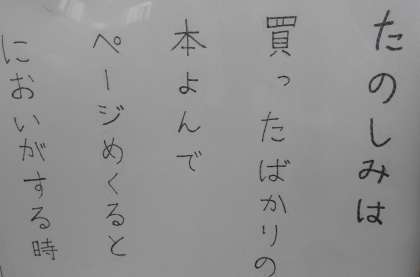 たのしみは
買ったばかりの
本よんで
ページめくると
においがする時